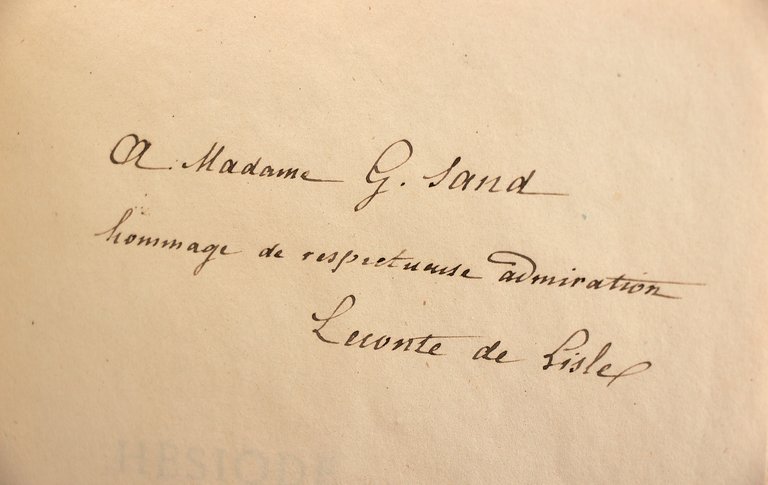 A Madame G. Sand
hommage de respectueuse admiration
Leconte de Lisle
HÉSIODE